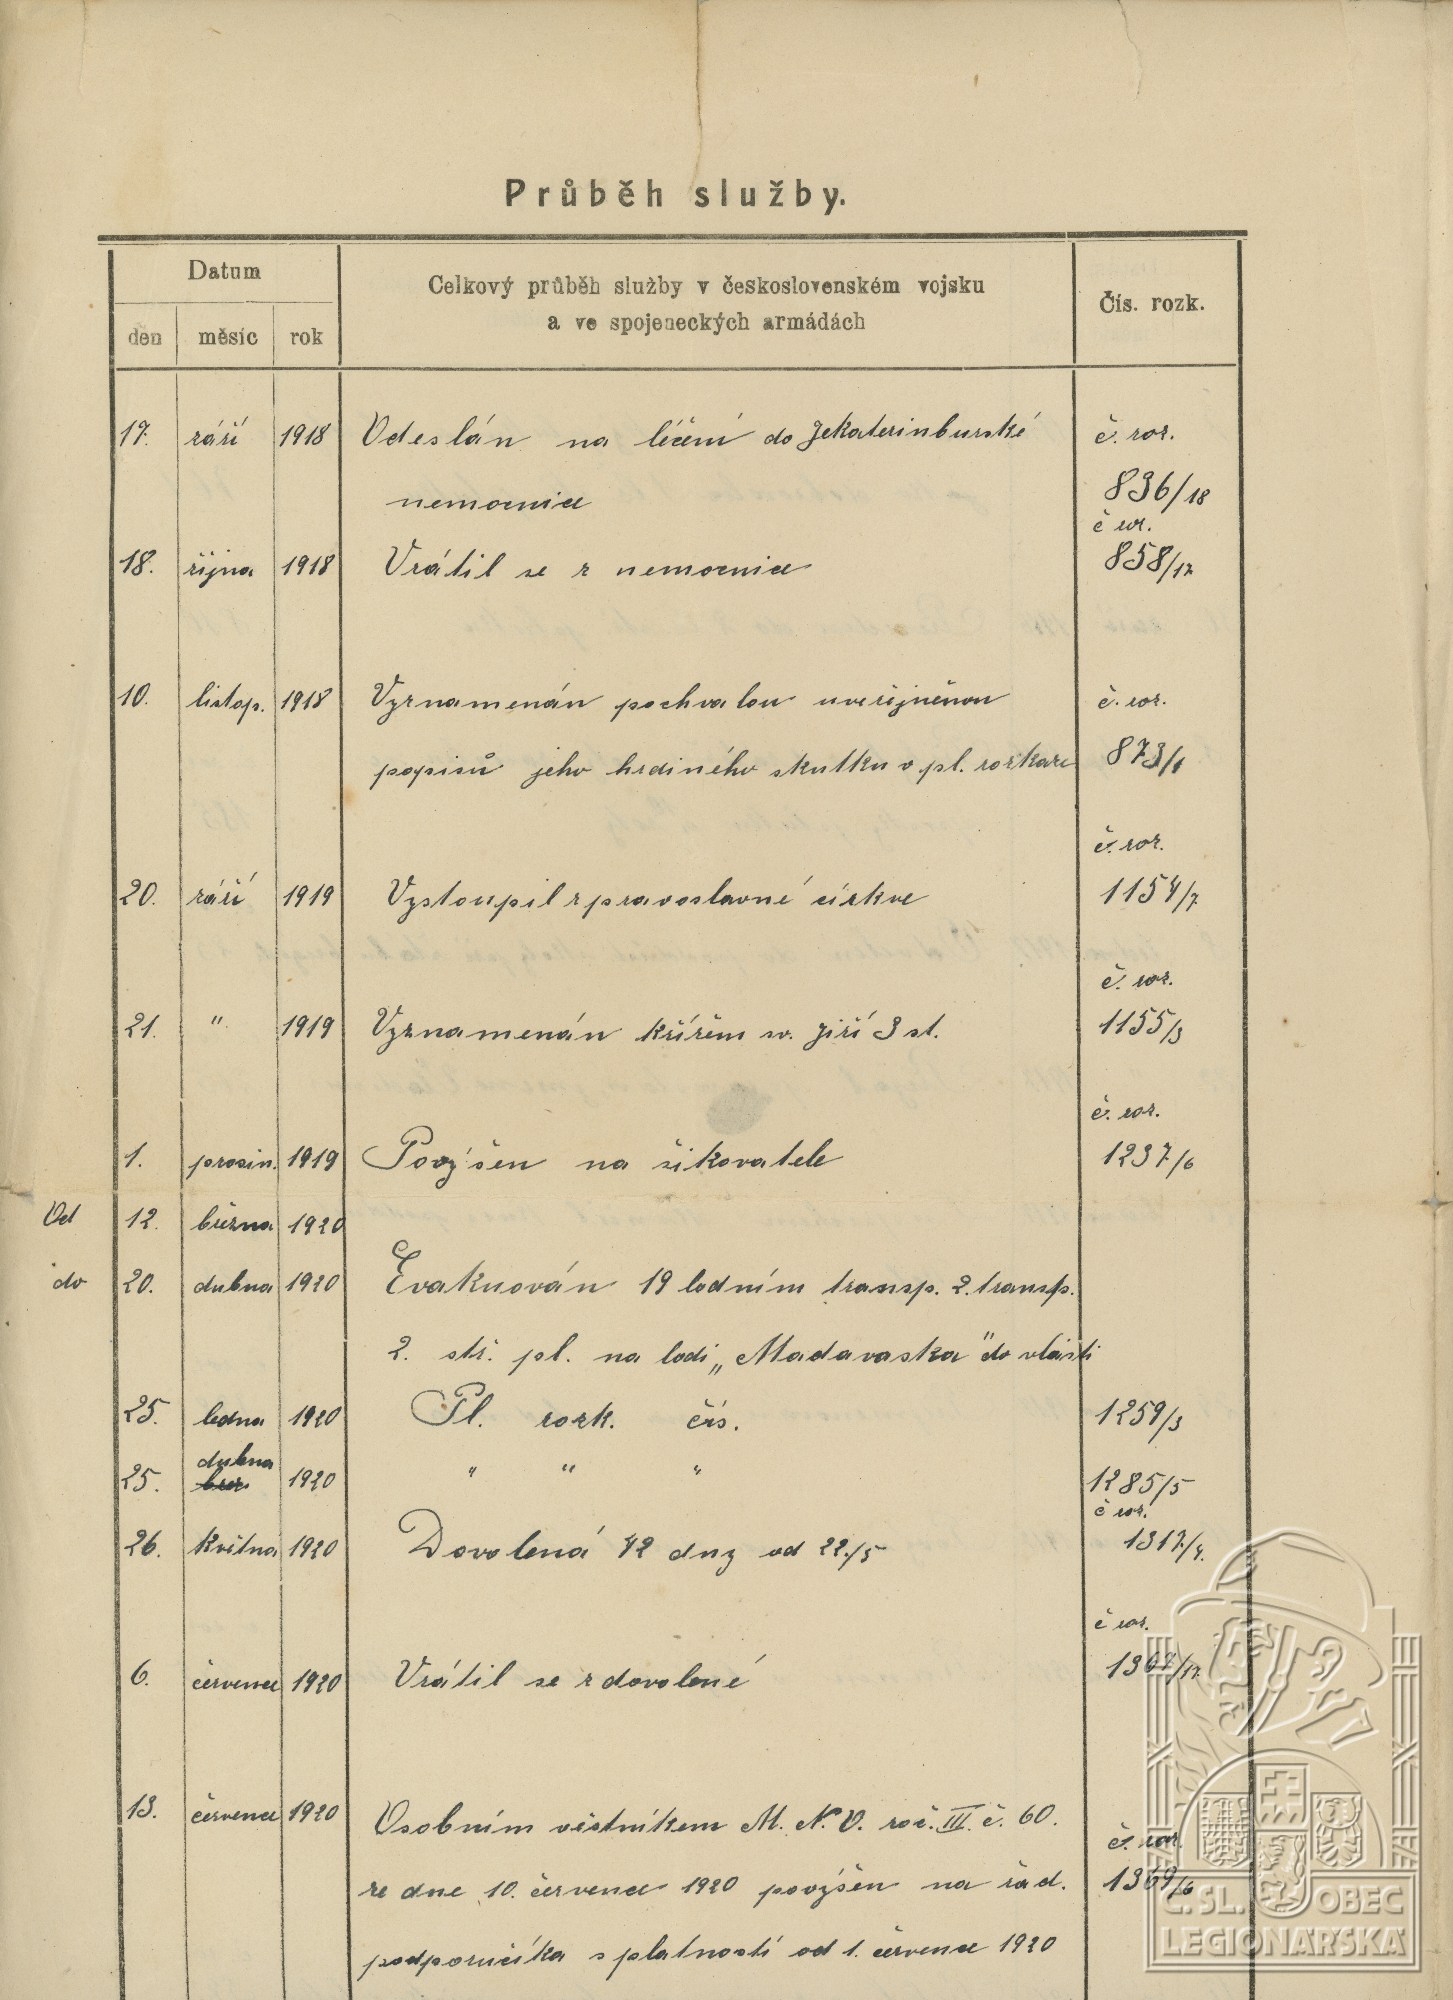 Průběh služby.
Datum
Celkový průběh služby v československém vojsku
a ve spojeneckých armádách
Čís. rozk.
den měsíc rok
17. září 1918 Odeslán na léčení do Jekaterinburské č. roz.
nemocnice 836/18
č roz.
18. října 1918 Vrátil se z nemocnice 858/17
10. listop. 1918 Vyznamenán pochvalou uveřijněnou č. roz.
popisů jeho hrdiného skutku v pl. rozkaze 873/1
č. roz.
20. září 1919 Vystoupil z pravoslavné církve 1154/7
č. roz.
21. " 1919 Vyznamenán křížem sv. Jiří 3 st. 1155/3
č. roz.
1. prosin. 1919 Povýšen na šikovatele 1237/6
Od 12. března 1920
do 20. dubna 1920 Evakuován 19 lodním transp. 2. transp.
2. stř. pl. na lodi „Madawaska" do vlasti
25. ledna 1920 Pl. rozk. čís. 1259/3
dubna
25. břez 1920 " " " 1285/5
č roz.
26. května 1920 Dovolená 42 dny od 22./5 1317/4.
č roz.
6. července 1920 Vrátil se z dovolené 1367/17.
13. července 1920 Osobním věstníkem M. N. O. roč. III. č. 60. č. roz.
ze dne 10. července 1920 povýšen na řad. 1369/6
podporučíka s platností od 1. července 1920
Č. SL. OBEC
LEGIONÁŘSKÁ